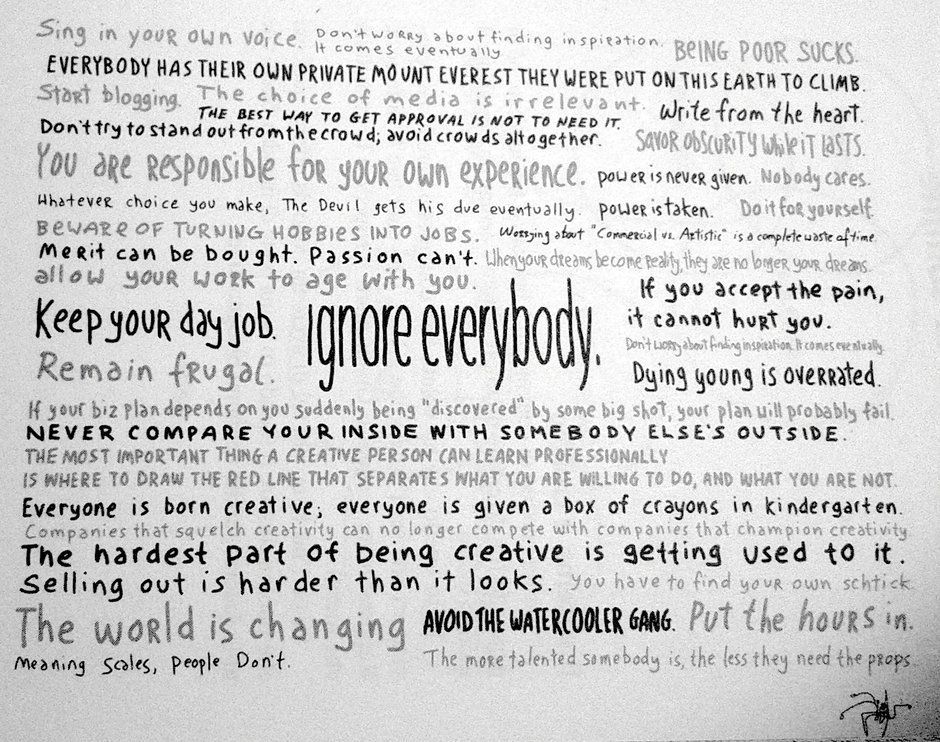 Sing in your own voice. Don't worry about finding inspiration.
It comes eventually. Being poor sucks.
EVERYBODY HAS THEIR OWN PRIVATE MOUNT EVEREST THEY WERE PUT ON THIS EARTH TO CLIMB.
Start blogging. The choice of media is irrelevant. Write from the heart.
THE BEST WAY TO GET APPROVAL IS NOT TO NEED IT.
Don't try to stand out from the crowd; avoid crowds altogether. SAVOR OBSCURITY while it LASTS.
You are responsible for your own experience. power is never given. Nobody cares.
Whatever choice you make, The Devil gets his due eventually. power is taken. Do it for yourself.
BEWARE OF TURNING HOBBIES INTO JOBS. Worrying about "Commercial vs. Artistic" is a complete waste of time.
Merit can be bought. Passion can't. When your dreams become reality, they are no longer your dreams.
allow your work to age with you.
If you accept the pain,
it cannot hurt you.
Keep your day job. ignore everybody.
Don't worry about finding inspiration. It comes eventually.
Remain frugal. Dying young is overrated.
If your biz plan depends on you suddenly being "discovered" by some big shot, your plan will probably fail.
NEVER COMPARE YOUR INSIDE WITH SOMEBODY ELSE'S OUTSIDE.
THE MOST IMPORTANT THING A CREATIVE PERSON CAN LEARN PROFESSIONALLY
IS WHERE TO DRAW THE RED LINE THAT SEPARATES WHAT YOU ARE WILLING TO DO, AND WHAT YOU ARE NOT.
Everyone is born creative; everyone is given a box of crayons in kindergarten.
Companies that squelch creativity can no longer compete with companies that champion creativity.
The hardest part of being creative is getting used to it.
Selling out is harder than it looks. You have to find your own schtick.
The world is changing AVOID THE WATERCOOLER GANG. Put the hours in.
Meaning Scales, people Don't. The more talented somebody is, the less they need the props.